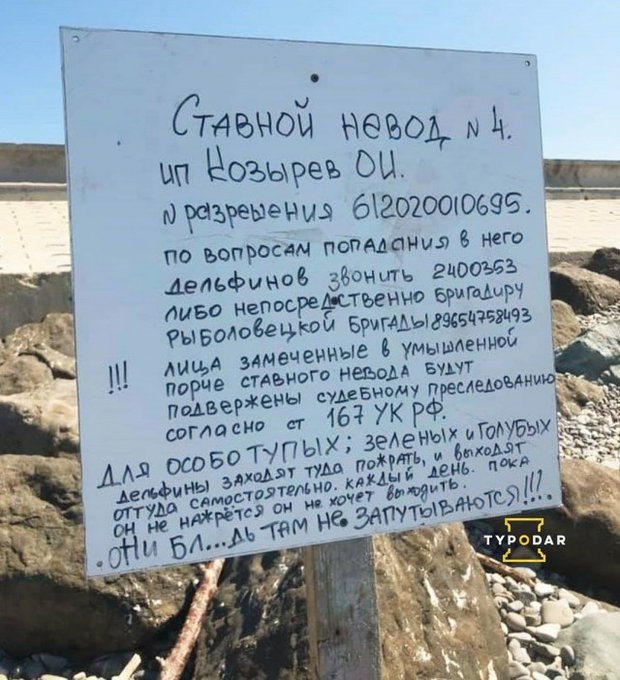 Ставной невод N 4.
ип Козырев ОИ.
N разрешения 612020010695.
по вопросам попадания в него
дельфинов звонить 2400353
либо непосредственно бригадиру
рыболовецкой бригады 89654758493
!!! лица замеченные в умышленной
порче ставного невода будут
подвержены судебному преследованию
согласно ст 167 УК РФ.
Для особо тупых; зеленых и голубых
дельфины заходят туда пожрать, и выходят
оттуда самостоятельно. каждый день. пока
он не нажрётся он не хочет выходить.
. они бл...дь там не запутываются!!!.
TYPODAR